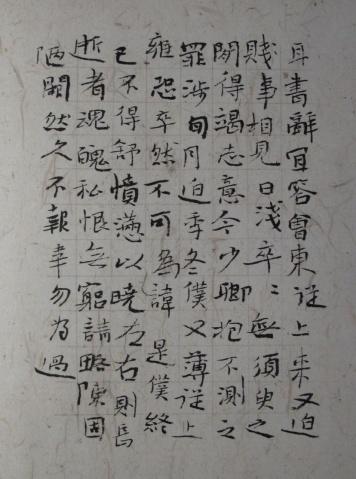 耳書辭宜答會東從上来又迫
賤事相見日淺卒〻無須臾之
閒得竭志意今少卿抱不測之
罪涉旬月迫季冬僕又薄從上
雍恐卒然不可為諱是僕終
已不得舒憤懣以曉左右則長
逝者魂魄私恨無窮請略陳固
陋闕然久不報幸勿為過